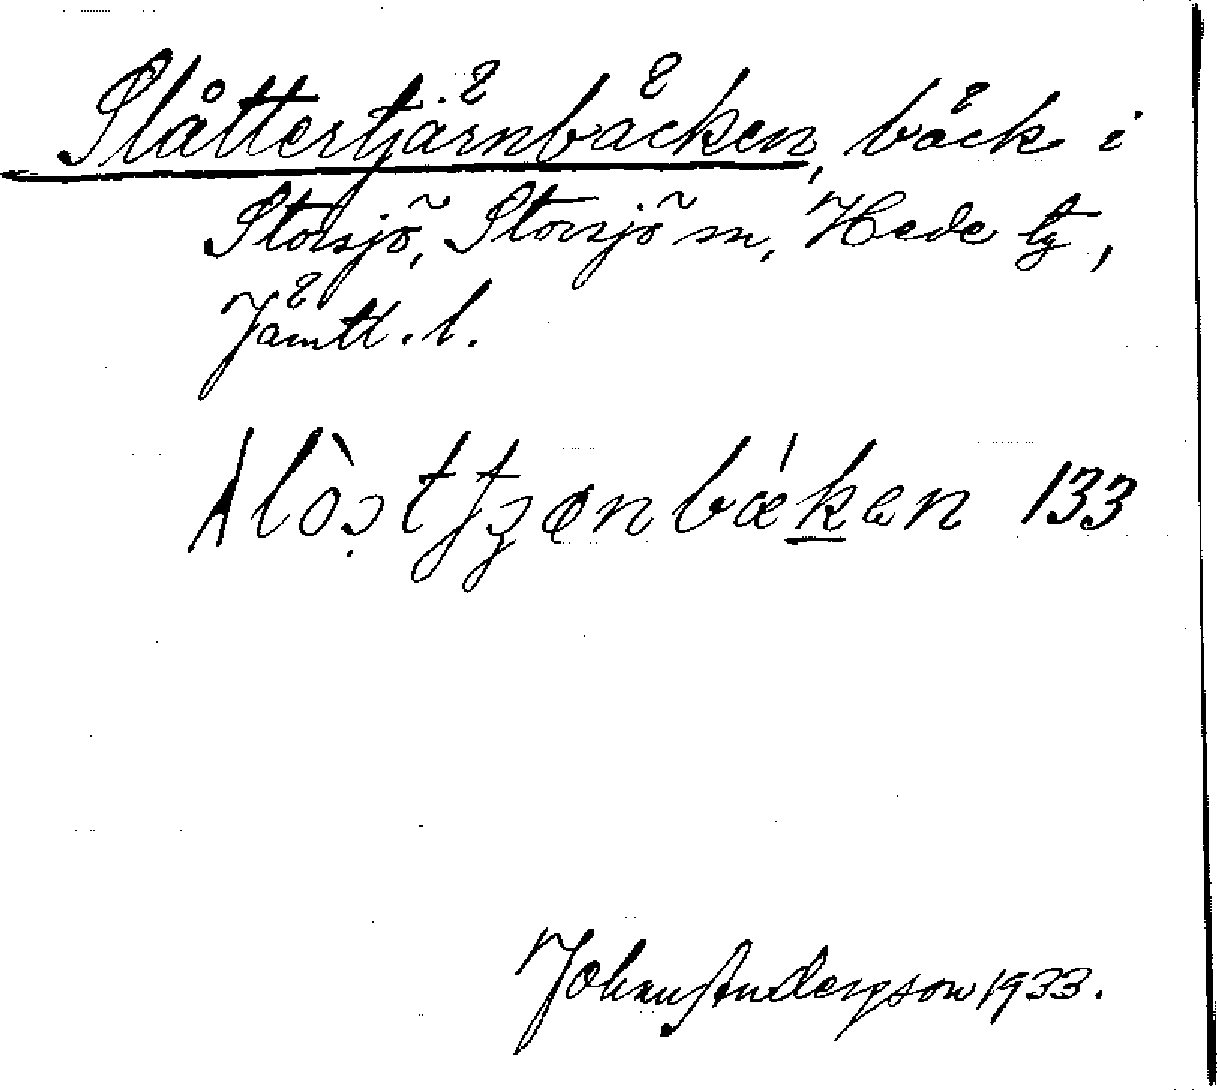 Slåttertjärnbäcken, bäck i
Storsjö, Storsjö sn, Hede tg,
Jämtl. l.
133
Johan Andersson 1933.